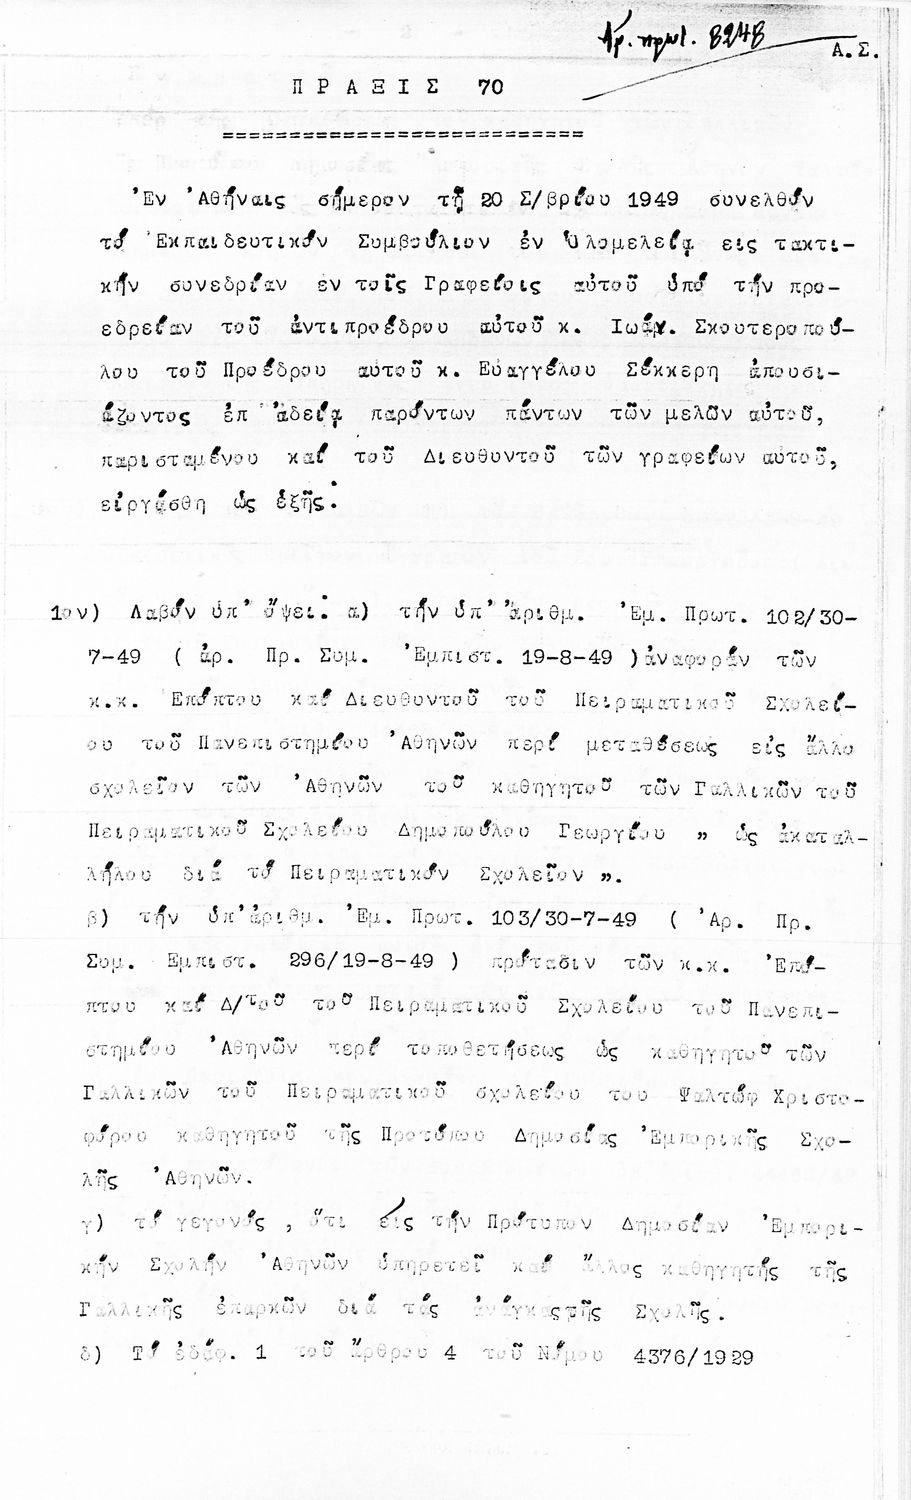 Ἀρ. πρωτ. 8248
Α.Σ.
ΠΡΑΞΙΣ 70
===========================
Ἐν Ἀθήναις σήμερον τῇ 20 Σ/βρίου 1949 συνελθόν
τό Ἐκπαιδευτικόν Συμβούλιον ἐν Ὁλομελείᾳ εις τακτι-
κήν συνεδρίαν εν τοῖς Γραφείοις αὐτοῦ ὑπό τήν προ-
εδρείαν τοῦ ἀντιπροέδρου αὐτοῦ κ. Ιωάν. Σκουτεροπού-
λου τοῦ Προέδρου αὐτοῦ κ. Εὐαγγέλου Σέκκερη ἀπουσι-
άζοντος ἐπ' ἀδείᾳ παρόντων πάντων τῶν μελῶν αὐτοῦ,
παρισταμένου καί τοῦ Διευθυντοῦ τῶν γραφείων αὐτοῦ,
εἰργάσθη ὡς ἑξῆς:
1ον) Λαβόν ὑπ' ὄψει: α) τήν ὑπ' ἀριθμ. Ἐμ. Πρωτ. 102/30-
7-49 ( ἀρ. Πρ. Συμ. Ἐμπιστ. 19-8-49 )ἀναφοράν τῶν
κ.κ. Ἐπόπτου καί Διευθυντοῦ τοῦ Πειραματικοῦ Σχολεί-
ου τοῦ Πανεπιστημίου Ἀθηνῶν περί μεταθέσεως εἰς ἄλλο
σχολεῖον τῶν Ἀθηνῶν τοῦ καθηγητοῦ τῶν Γαλλικῶν τοῦ
Πειραματικοῦ Σχολείου Δημοπούλου Γεωργίου " ὡς ἀκαταλ-
λήλου διά τό Πειραματικόν Σχολεῖον ".
β) τήν ὑπ' ἀριθμ. Ἐμ. Πρωτ. 103/30-7-49 ( Ἀρ. Πρ.
Συμ. Εμπιστ. 296/19-8-49 ) πρότασιν τῶν κ.κ. Ἐπό-
πτου καί Δ/τοῦ τοῦ Πειραματικοῦ Σχολείου τοῦ Πανεπι-
στημίου Ἀθηνῶν περί τοποθετήσεως ὡς καθηγητοῦ τῶν
Γαλλικῶν τοῦ Πειραματικοῦ σχολείου του Ψαλτώφ Χριστο-
φόρου καθηγητοῦ τῆς Προτύπου Δημοσίας Ἐμπορικῆς Σχο-
λῆς Ἀθηνῶν.
γ) τό γεγονός , ὅτι εἰς τήν Πρότυπον Δημοσίαν Ἐμπορι-
κήν Σχολήν Ἀθηνῶν ὑπηρετεῖ καί ἄλλος καθηγητής τῆς
Γαλλικῆς ἐπαρκῶν διά τάς ἀνάγκαςτῆς Σχολῆς.
δ) Τό ἐδάφ. 1 τοῦ ἄρθρου 4 τοῦ Νόμου 4376/1929